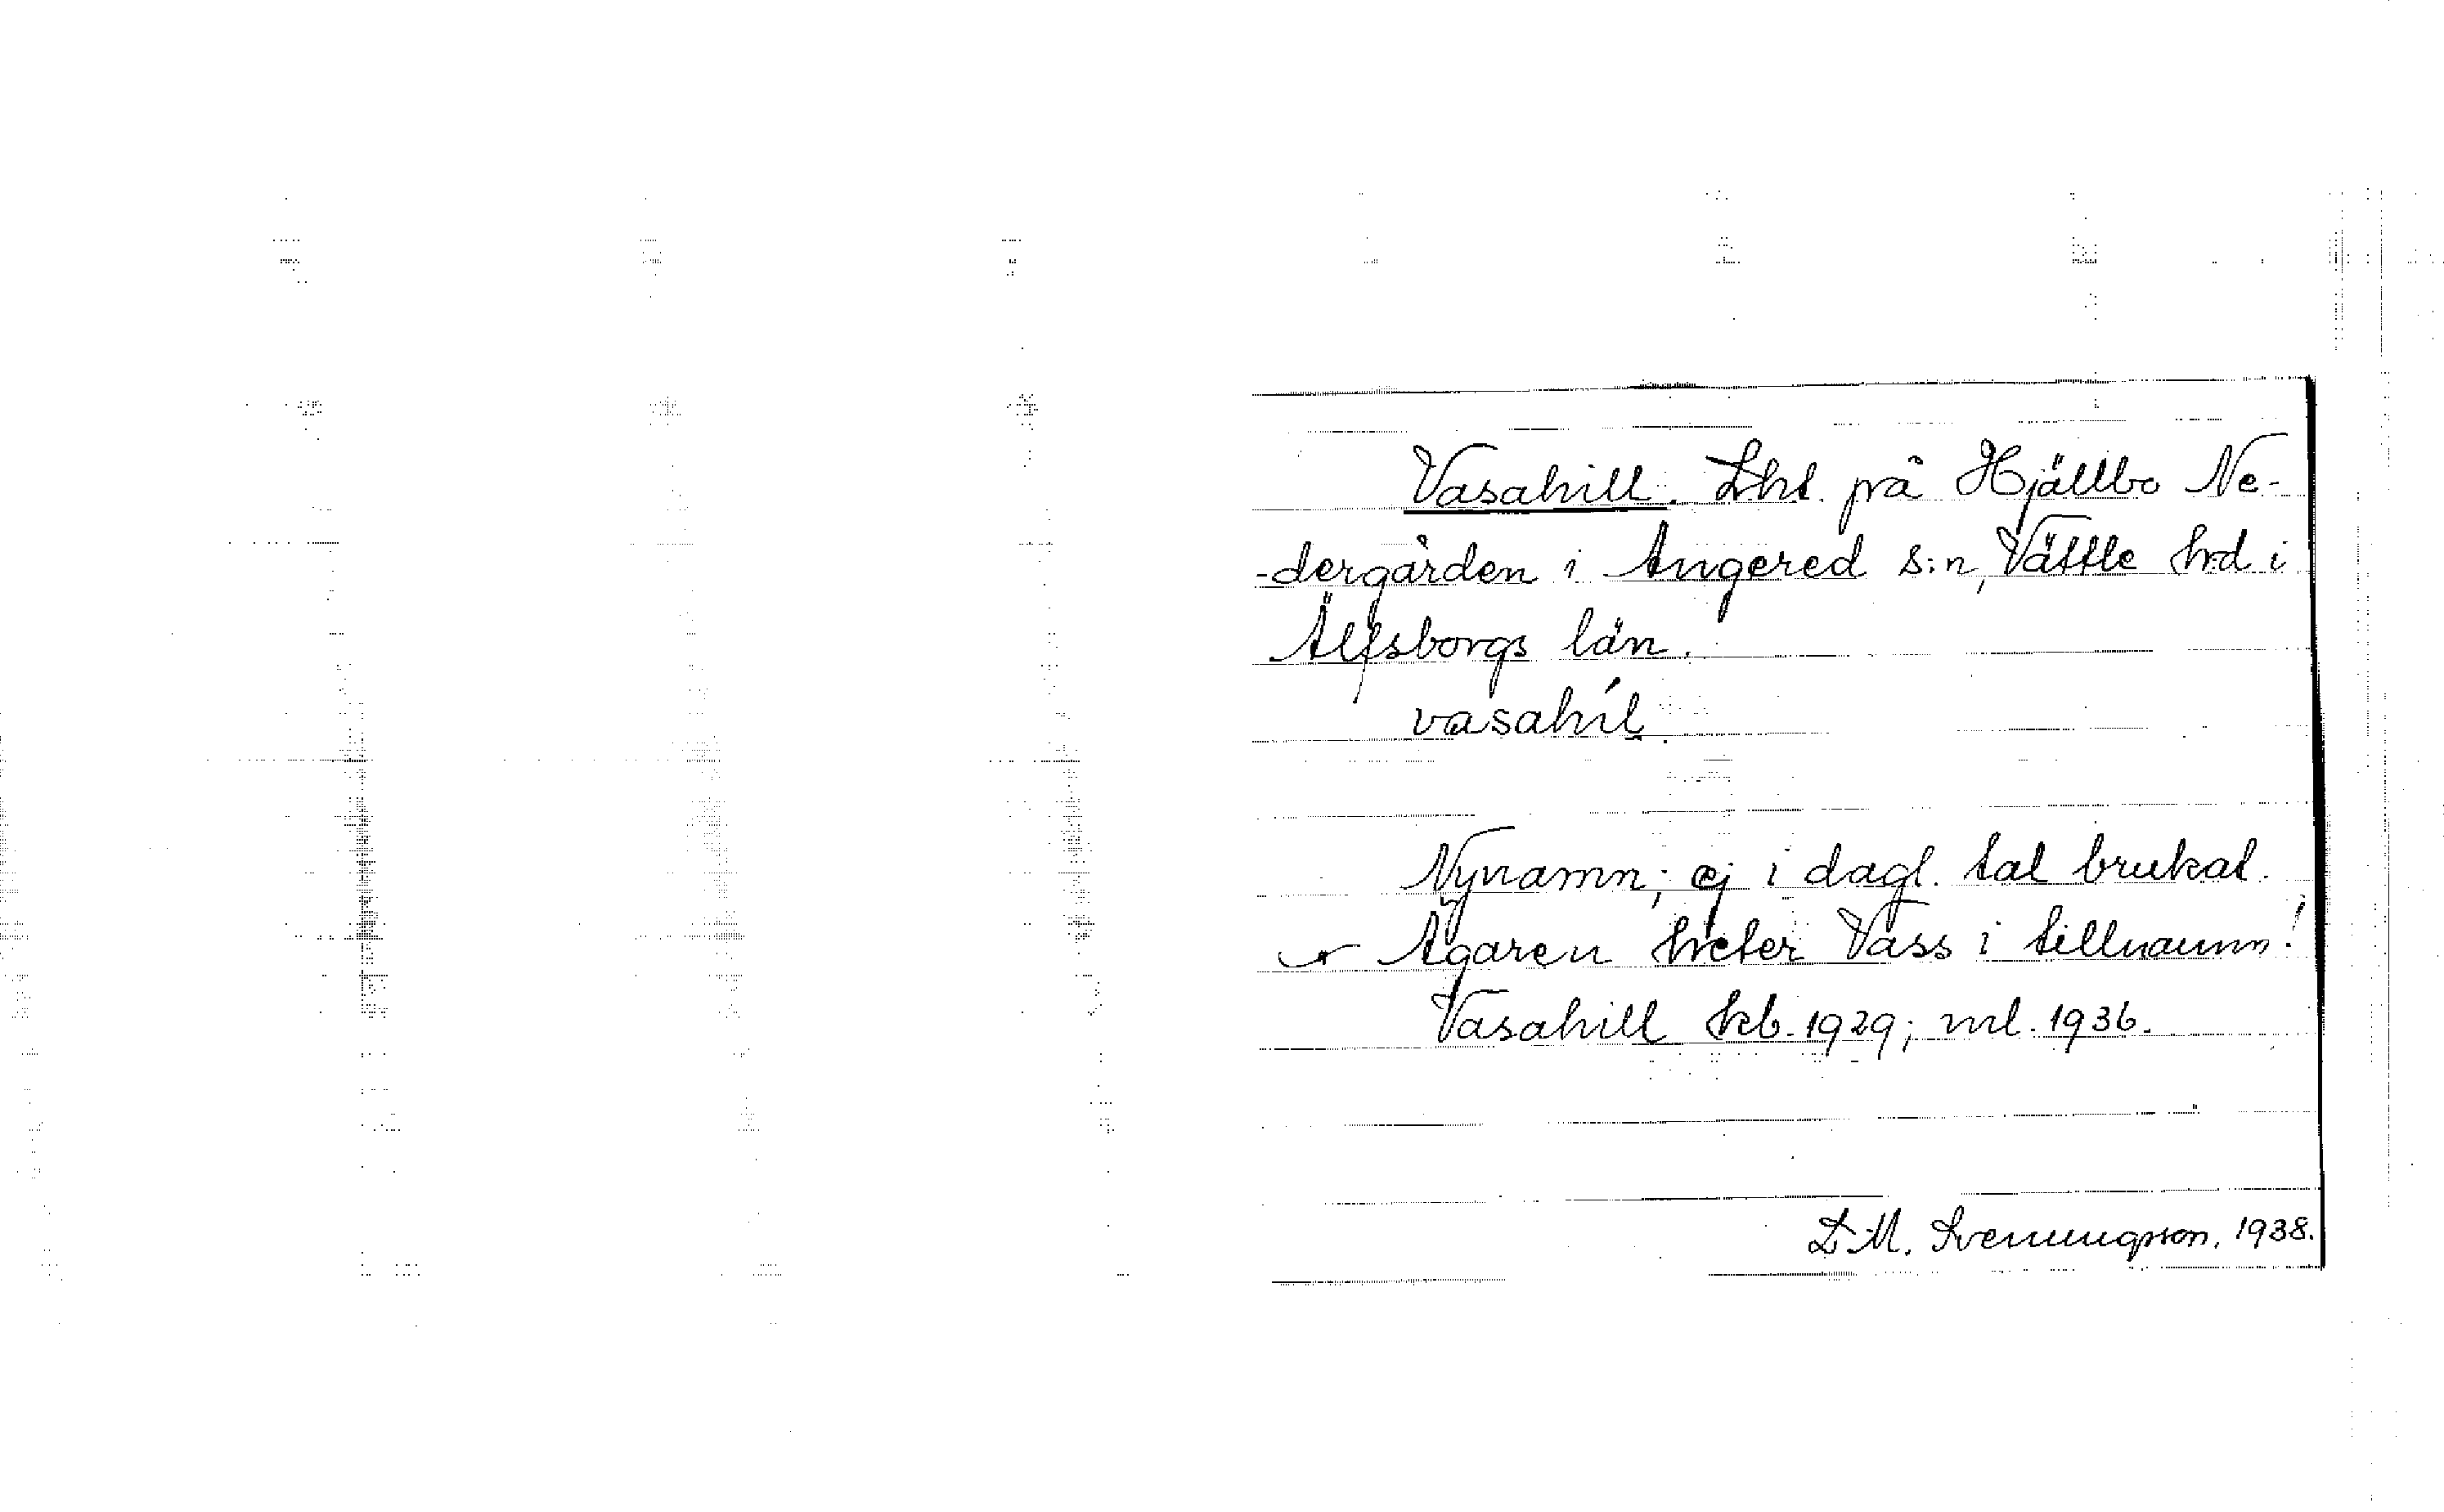 Vasahill. Lht. på Hjällbo Ne-
-dergården i Angered s:n, Vättle hrd i
Älfsborgs län.
vasahíl
Nynamn; ej i dagl. tal brukat.
Ägaren heter Vass i tillnamn!
Vasahill kb. 1929; ml. 1936.
D.M. Svenungsson, 1938.